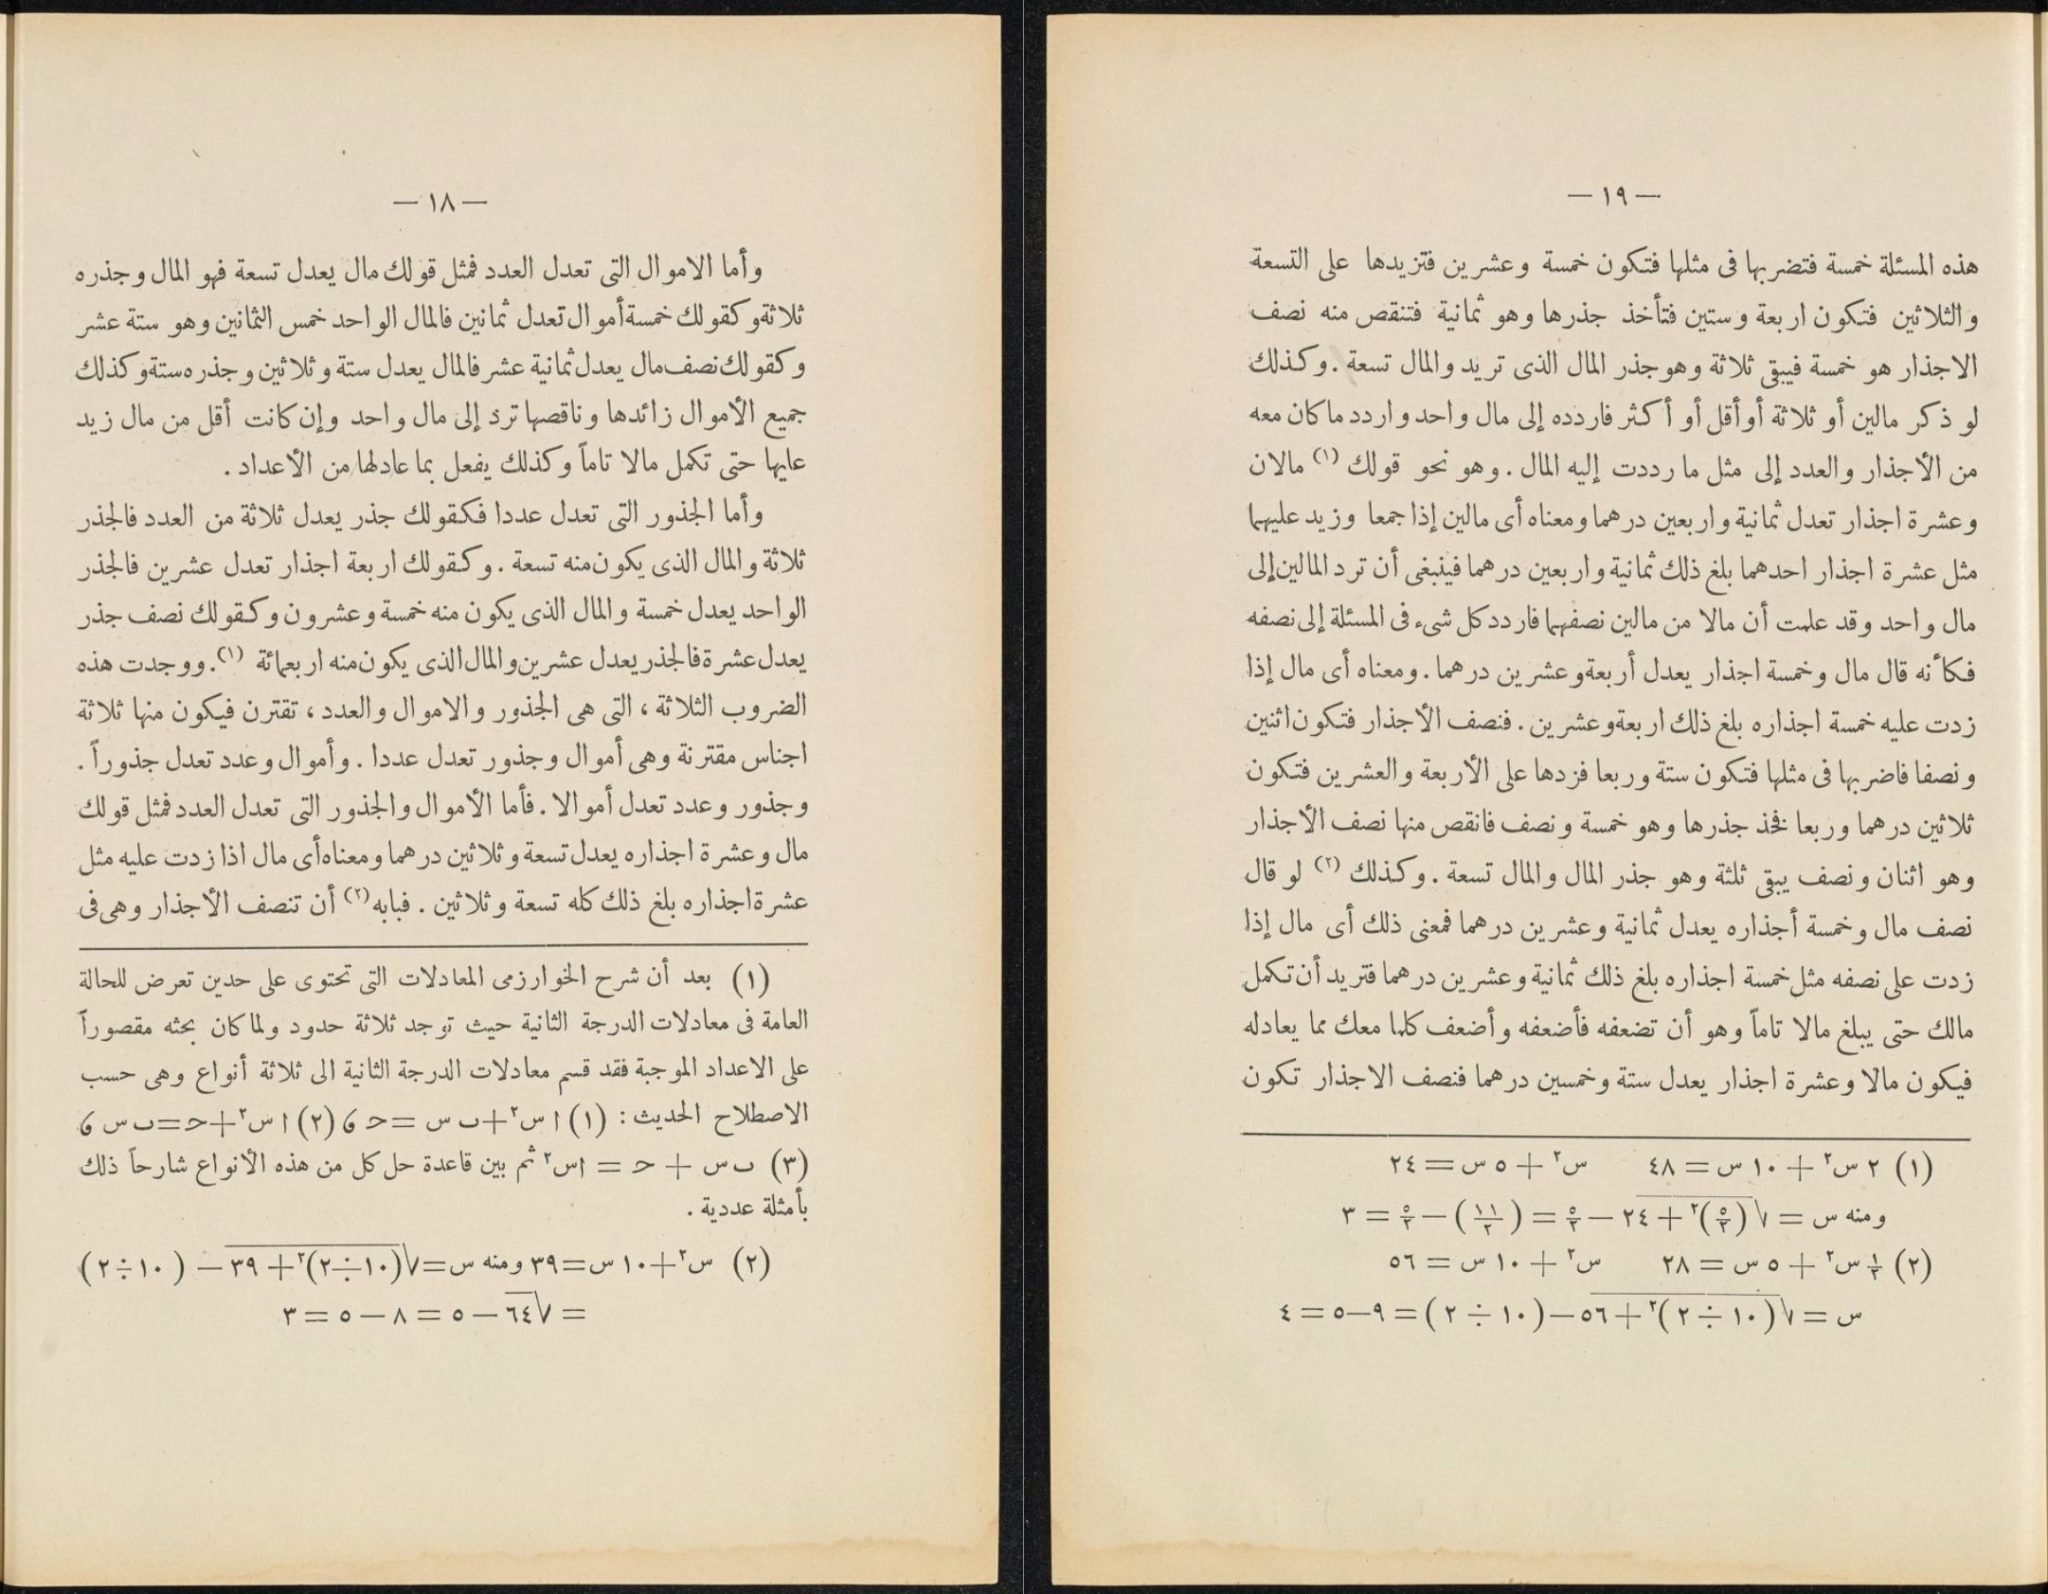 — ١٨ —
وأما الاموال التى تعدل العدد فمثل قولك مال يعدل تسعة فهو المال وجذره
ثلاثة وكقولك خمسة أموال تعدل ثمانين فالمال الواحد خمس الثمانين وهو ستة عشر
وكقولك نصف مال يعدل ثمانية عشر فالمال يعدل ستة وثلاثين وجذره ستة وكذلك
جميع الأموال زائدها وناقصها ترد إلى مال واحد وإن كانت أقل من مال زيد
عليها حتى تكمل مالا تاماً وكذلك يفعل بما عادلها من الأعداد .
وأما الجذور التى تعدل عددا فكقولك جذر يعدل ثلاثة من العدد فالجذر
ثلاثة والمال الذى يكون منه تسعة . وكقولك اربعة اجذار تعدل عشرين فالجذر
الواحد يعدل خمسة والمال الذى يكون منه خمسة وعشرون وكقولك نصف جذر
يعدل عشرة فالجذر يعدل عشرين والمال الذى يكون منه اربعمائة (١). ووجدت هذه
الضروب الثلاثة ، التى هى الجذور والاموال والعدد ، تقترن فيكون منها ثلاثة
اجناس مقترنة وهى أموال وجذور تعدل عددا . وأموال وعدد تعدل جذوراً .
وجذور وعدد تعدل أموالا . فأما الأموال والجذور التى تعدل العدد فمثل قولك
مال وعشرة اجذاره يعدل تسعة وثلاثين درهما ومعناه أى مال اذا زدت عليه مثل
عشرة اجذاره بلغ ذلك كله تسعة وثلاثين . فبابه (٢) أن تنصف الأجذار وهى فى
(١) بعد أن شرح الخوارزمى المعادلات التى تحتوى على حدين تعرض للحالة
العامة فى معادلات الدرجة الثانية حيث توجد ثلاثة حدود ولما كان بحثه مقصوراً
على الاعداد الموجبة فقد قسم معادلات الدرجة الثانية الى ثلاثة أنواع وهى حسب
الاصطلاح الحديث : (١) ا س٢ + ب س = ح ، (٢) ا س٢ + ح = ب س ،
(٣) ب س + ح = ا س٢ ثم بين قاعدة حل كل من هذه الأنواع شارحاً ذلك
بأمثلة عددية .
(٢) س٢ + ١٠ س = ٣٩ ومنه س = √(١٠ ÷ ٢)٢ + ٣٩ — (١٠ ÷ ٢)
= √٦٤ — ٥ = ٨ — ٥ = ٣
— ١٩ —
هذه المسئلة خمسة فتضربها فى مثلها فتكون خمسة وعشرين فتزيدها على التسعة
والثلاثين فتكون اربعة وستين فتأخذ جذرها وهو ثمانية فتنقص منه نصف
الاجذار هو خمسة فيبقى ثلاثة وهو جذر المال الذى تريد والمال تسعة . وكذلك
لو ذكر مالين أو ثلاثة أو أقل أو أكثر فاردده إلى مال واحد واردد ما كان معه
من الأجذار والعدد إلى مثل ما رددت إليه المال . وهو نحو قولك (١) مالان
وعشرة اجذار تعدل ثمانية واربعين درهما ومعناه أى مالين إذا جمعا وزيد عليهما
مثل عشرة اجذار احدهما بلغ ذلك ثمانية واربعين درهما فينبغى أن ترد المالين إلى
مال واحد وقد علمت أن مالا من مالين نصفهما فاردد كل شىء فى المسئلة إلى نصفه
فكأنه قال مال وخمسة اجذار يعدل أربعة وعشرين درهما . ومعناه أى مال إذا
زدت عليه خمسة اجذاره بلغ ذلك اربعة وعشرين . فنصف الأجذار فتكون اثنين
ونصفا فاضربها فى مثلها فتكون ستة وربعا فزدها على الأربعة والعشرين فتكون
ثلاثين درهما وربعا فخذ جذرها وهو خمسة ونصف فانقص منها نصف الأجذار
وهو اثنان ونصف يبقى ثلثة وهو جذر المال والمال تسعة . وكذلك (٢) لو قال
نصف مال وخمسة أجذاره يعدل ثمانية وعشرين درهما فمعنى ذلك أى مال إذا
زدت على نصفه مثل خمسة اجذاره بلغ ذلك ثمانية وعشرين درهما فتريد أن تكمل
مالك حتى يبلغ مالا تاماً وهو أن تضعفه فأضعفه وأضعف كلما معك مما يعادله
فيكون مالا وعشرة اجذار يعدل ستة وخمسين درهما فنصف الاجذار تكون
(١) ٢ س٢ + ١٠ س = ٤٨ س٢ + ٥ س = ٢٤
ومنه س = √(٥/٢)٢ + ٢٤ — ٥/٢ = (١١/٢) — ٥/٢ = ٣
(٢) ١/٢ س٢ + ٥ س = ٢٨ س٢ + ١٠ س = ٥٦
س = √(١٠ ÷ ٢)٢ + ٥٦ — (١٠ ÷ ٢) = ٩—٥ = ٤